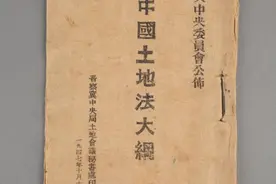 中央委員會公佈
中國土地法大綱
晋察冀中央局土地會議秘書處印
一九四七年十月